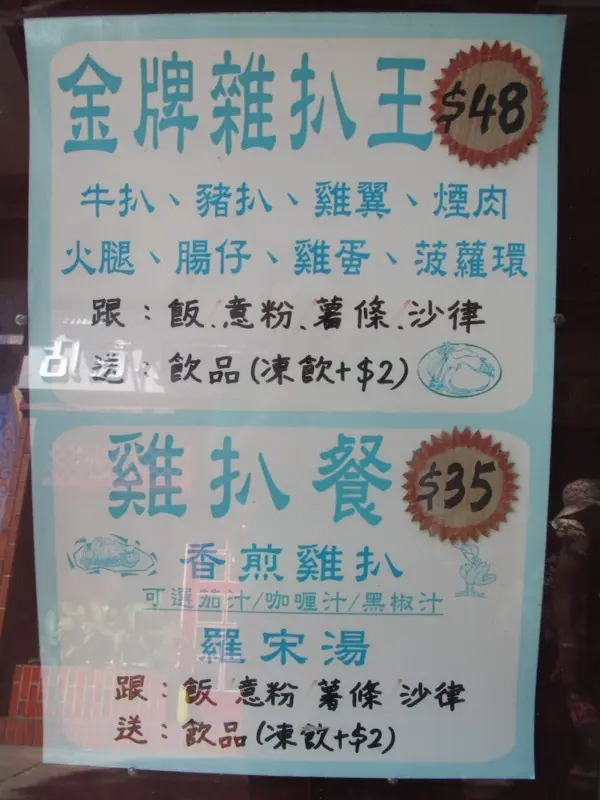 金牌雜扒王 $48
牛扒、豬扒、雞翼、煙肉
火腿、腸仔、雞蛋、菠蘿環
跟：飯、意粉、薯條、沙律
送：飲品(凍飲+$2)
雞扒餐 $35
香煎雞扒
可選茄汁/咖喱汁/黑椒汁
羅宋湯
跟：飯 意粉 薯條 沙律
送：飲品(凍飲+$2)